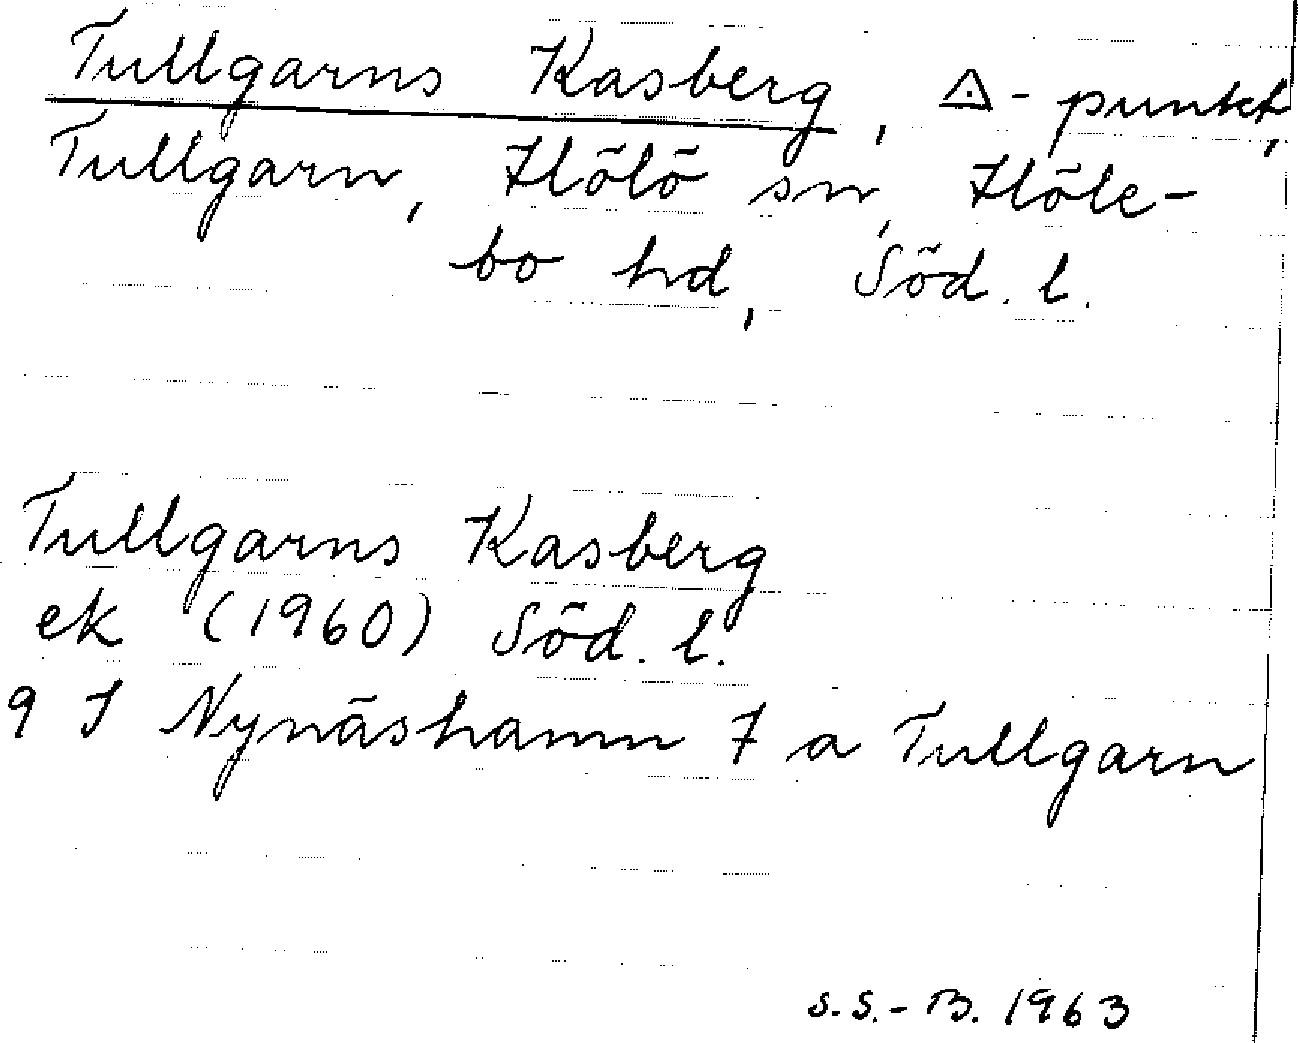 Tullgarns Kasberg, △-punkt,
Tullgarn, Hölö sn, Höle-
bo hd, Söd. l.
Tullgarns Kasberg
ek (1960) Söd. l.
9 I Nynäshamn 7 a Tullgarn
S.S.-B. 1963